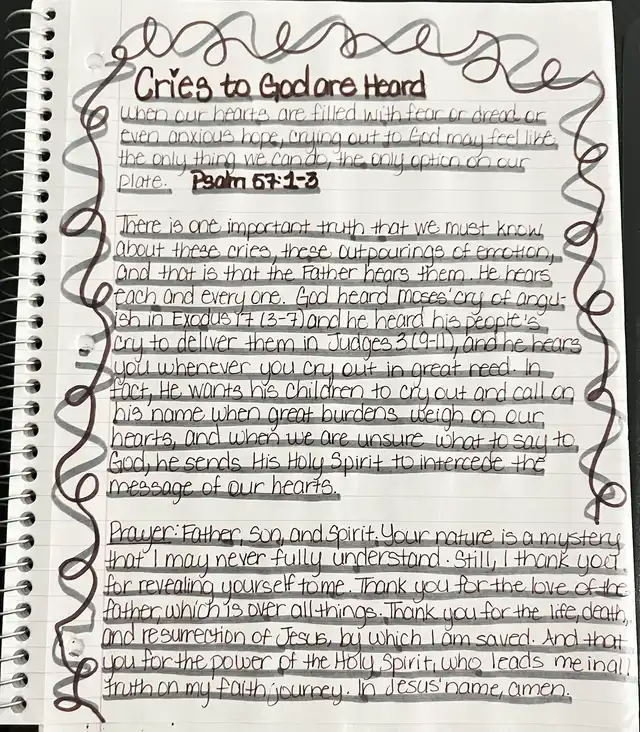 Cries to God are Heard
when our hearts are filled with fear or dread or
even anxious hope, crying out to God may feel like
the only thing we can do, the only option on our
plate. Psalm 57:1-3
There is one important truth that we must know
about these cries, these outpourings of emotion,
and that is that the Father hears them. He hears
each and every one. God heard Moses' cry of angu-
ish in Exodus 17 (3-7) and he heard his people's
cry to deliver them in Judges 3 (9-11), and he hears
you whenever you cry out in great need. In
fact, He wants his children to cry out and call on
his name when great burdens weigh on our
hearts, and when we are unsure what to say to
God, he sends His Holy Spirit to intercede the
message of our hearts.
Prayer: Father, Son, and Spirit. Your nature is a mystery
that I may never fully understand. Still, I thank you
for revealing yourself to me. Thank you for the love of the
father, which is over all things. Thank you for the life, death,
and resurrection of Jesus, by which I am saved. And that
you for the power of the Holy Spirit, who leads me in all
truth on my faith journey. In Jesus' name, amen.